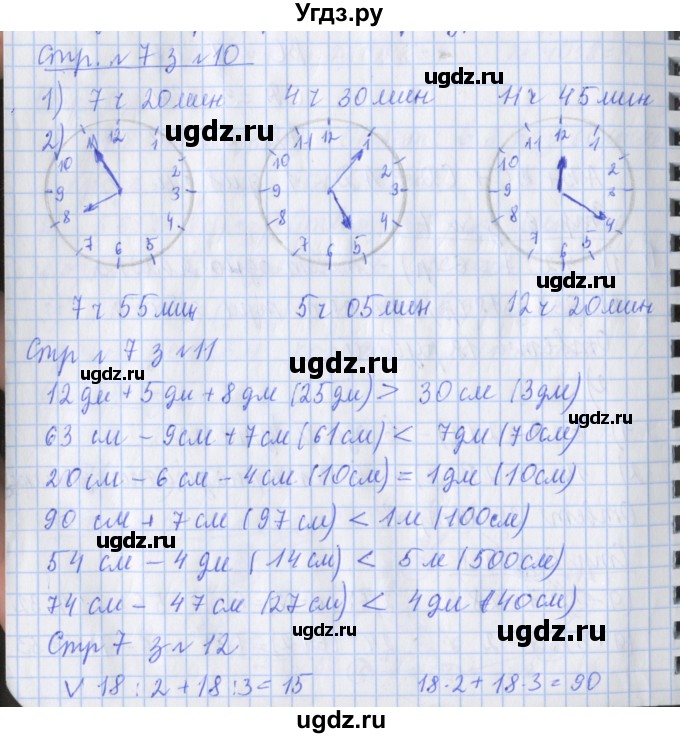 Угдз.ру
Стр. № 7 з № 10
1) 7 ч 20 мин 4 ч 30 мин 11 ч 45 мин
ugdz.ru ugdz.ru ugdz.ru
2)
11 12 1 2 3 4 5 6 7 8 9 10
11 12 1 2 3 4 5 6 7 8 9 10
11 12 1 2 3 4 5 6 7 8 9 10
ugdz.ru
ugdz.ru
7 ч 55 мин 5 ч 05 мин 12 ч 20 мин
Стр № 7 з № 11
ugdz.ru
ugdz.ru
12 дм + 5 дм + 8 дм (25 дм) > 30 см (3 дм)
63 см - 9 см + 7 см (61 см) < 7 дм (70 см)
ugdz.ru
20 см - 6 см - 4 см (10 см) = 1 дм (10 см)
90 см + 7 см (97 см) < 1 м (100 см)
ugdz.ru ugdz.ru
54 см - 4 дм (14 см) < 5 м (500 см)
74 см - 47 см (27 см) < 4 дм (40 см)
ugdz.ru ugdz.ru
Стр 7 з № 12
V 18 : 2 + 18 : 3 = 15 18 · 2 + 18 · 3 = 90
ugdz.ru